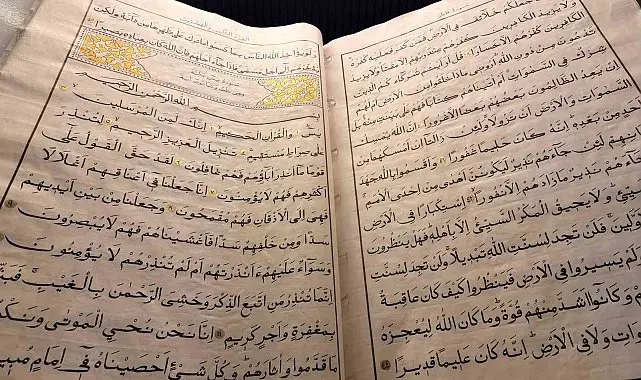 جعلكم خلائف في الأرض فمن كفر فعليه كفره
ولا يزيد الكافرين كفرهم عند ربهم إلا مقتا ولا يزيد
الكافرين كفرهم إلا خسارا قل أرأيتم شركاءكم الذين
تدعون من دون الله أروني ماذا خلقوا من الأرض أم لهم
شرك في السموات أم آتيناهم كتابا فهم على بينت منه بل
إن يعد الظالمون بعضهم بعضا إلا غرورا إن الله يمسك
السموات والأرض أن تزولا ولئن زالتا إن أمسكهما من
أحد من بعده إنه كان حليما غفورا وأقسموا بالله جهد
أيمانهم لئن جاءهم نذير ليكونن أهدى من إحدى الأمم
جاءهم نذير ما زادهم إلا نفورا استكبارا في الأرض
السيئ ولا يحيق المكر السيئ إلا بأهله فهل ينظرون
الأولين فلن تجد لسنت الله تبديلا ولن تجد لسنت
أولم يسيروا في الأرض فينظروا كيف كان عاقبة
وكانوا أشد منهم قوة وما كان الله ليعجزه
السموات ولا في الأرض إنه كان عليما قديرا
الجزء الثاني والعشرون
ولو يؤاخذ الله الناس بما كسبوا ما ترك على ظهرها من دابة ولكن
يؤخرهم إلى أجل مسمى فإذا جاء أجلهم فإن الله كان بعباده بصيرا
بسم الله الرحمن الرحيم
يس والقرآن الحكيم إنك لمن المرسلين
على صراط مستقيم تنزيل العزيز الرحيم لتنذر
قوما ما أنذر آباؤهم فهم غافلون لقد حق القول على
أكثرهم فهم لا يؤمنون إنا جعلنا في أعناقهم أغلالا
فهي إلى الأذقان فهم مقمحون وجعلنا من بين أيديهم
سدا ومن خلفهم سدا فأغشيناهم فهم لا يبصرون
وسواء عليهم ءأنذرتهم أم لم تنذرهم لا يؤمنون
إنما تنذر من اتبع الذكر وخشي الرحمن بالغيب فبشره
بمغفرة وأجر كريم إنا نحن نحي الموتى ونكتب
ما قدموا وآثارهم وكل شيء أحصيناه في إمام مبين